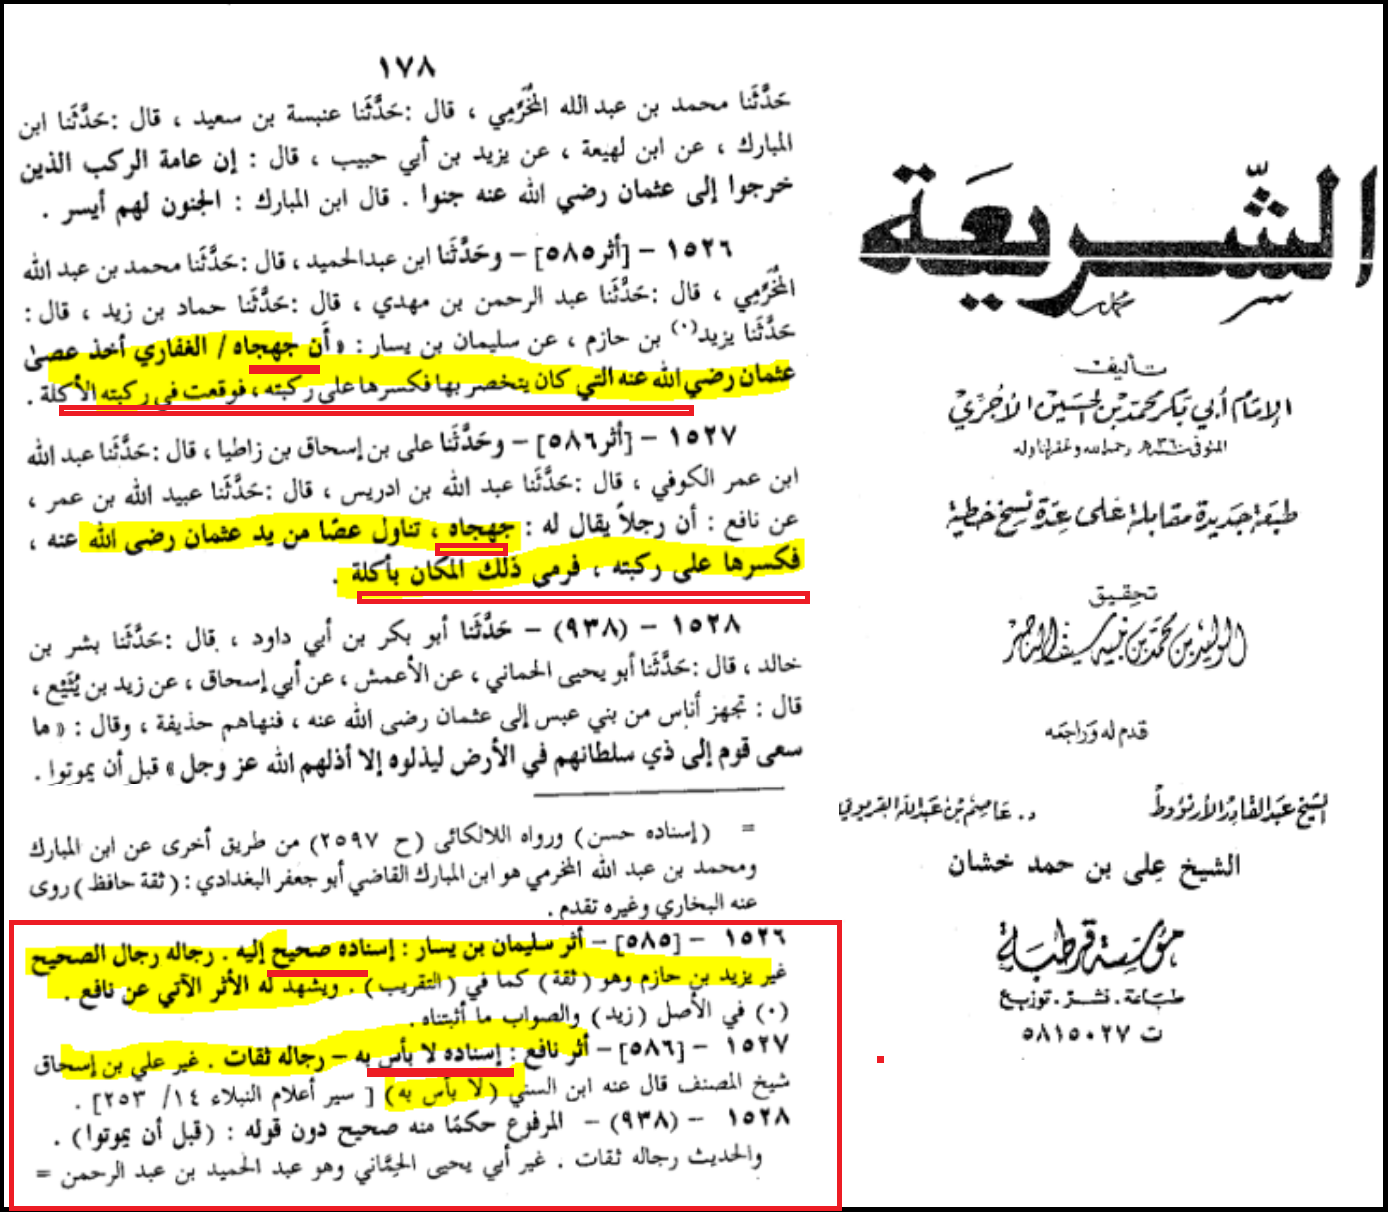 ١٧٨
حَدَّثَنا محمد بن عبد الله المُخَرِّمِي ، قال :حَدَّثَنا عنبسة بن سعيد ، قال :حَدَّثَنا ابن
المبارك ، عن ابن لهيعة ، عن يزيد بن أبي حبيب ، قال : إن عامة الركب الذين
خرجوا إلى عثمان رضي الله عنه جنوا . قال ابن المبارك : الجنون لهم أيسر .
١٥٢٦ – [أثر٥٨٥] – وحَدَّثَنا ابن عبدالحميد ، قال :حَدَّثَنا محمد بن عبد الله
المُخَرِّمِي ، قال :حَدَّثَنا عبد الرحمن بن مهدي ، قال :حَدَّثَنا حماد بن زيد ، قال :
حَدَّثَنا يزيد(٠) بن حازم ، عن سليمان بن يسار : « أن جهجاه / الغفاري أخذ عصىٰ
عثمان رضي الله عنه التي كان يتخصر بها فكسرها على ركبته ، فوقعت في ركبته الأكلة .
١٥٢٧ – [أثر٥٨٦] – وحَدَّثَنا على بن إسحاق بن زاطيا ، قال :حَدَّثَنا عبد الله
ابن عمر الكوفي ، قال :حَدَّثَنا عبد الله بن ادريس ، قال :حَدَّثَنا عبيد الله بن عمر ،
عن نافع : أن رجلاً يقال له : جهجاه ، تناول عصًا من يد عثمان رضى الله عنه ،
فكسرها على ركبته ، فرمى ذلك المكان بأكلة .
١٥٢٨ – (٩٣٨) – حَدَّثَنا أبو بكر بن أبي داود ، قال :حَدَّثَنا بشر بن
خالد ، قال :حَدَّثَنا أبو يحيى الحماني ، عن الأعمش ، عن أبي إسحاق ، عن زيد بن يُثَيْع ،
قال : تجهز أناس من بني عبس إلى عثمان رضى الله عنه ، فنهاهم حذيفة ، وقال : « ما
سعى قوم إلى ذي سلطانهم في الأرض ليذلوه إلا أذلهم الله عز وجل » قبل أن يموتوا .
= (إسناده حسن) ورواه اللالكائى (ح ٢٥٩٧) من طريق أخرى عن ابن المبارك
ومحمد بن عبد الله المخرمي هو ابن المبارك القاضي أبو جعفر البغدادي : (ثقة حافظ) روى
عنه البخاري وغيره تقدم .
١٥٢٦ – [٥٨٥] – أثر سليمان بن يسار : إسناده صحيح إليه . رجاله رجال الصحيح
غير يزيد بن حازم وهو (ثقة) كما في (التقريب) . ويشهد له الأثر الآتي عن نافع .
(٠) في الأصل (زيد) والصواب ما أثبتناه .
١٥٢٧ – [٥٨٦] – أثر نافع : إسناده لا بأس به – رجاله ثقات . غير علي بن إسحاق
شيخ المصنف قال عنه ابن السني (لا بأس به) [ سير أعلام النبلاء ١٤/ ٢٥٣] .
١٥٢٨ – (٩٣٨) – المرفوع حكمًا منه صحيح دون قوله : (قبل أن يموتوا) .
والحديث رجاله ثقات . غير أبي يحيى الحِمَّاني وهو عبد الحميد بن عبد الرحمن =
الشَّريعَة
تأليف
الإمَام أبي بَكر محمّد بن الحسَين الآجُرِّيّ
المتوفى سنة ٣٦٠هـ رحمه الله وغفر لنا وله
طبعَة جَديدة مقابلة عَلى عِدّة نسَخ خطيّة
تحقيق
الوليد بن محمّد بن نبيه سيف الناصر
قدم له وَراجعَه
الشيخ عَبد القادر الأرنؤوط
د. عَاصِم بن عَبد الله القريوتي
الشيخ عِلى بن حمد خشان
مؤسّسة قرطبَة
طبَاعة . نشر . توزيع
ت ٥٨١٥٠٢٧